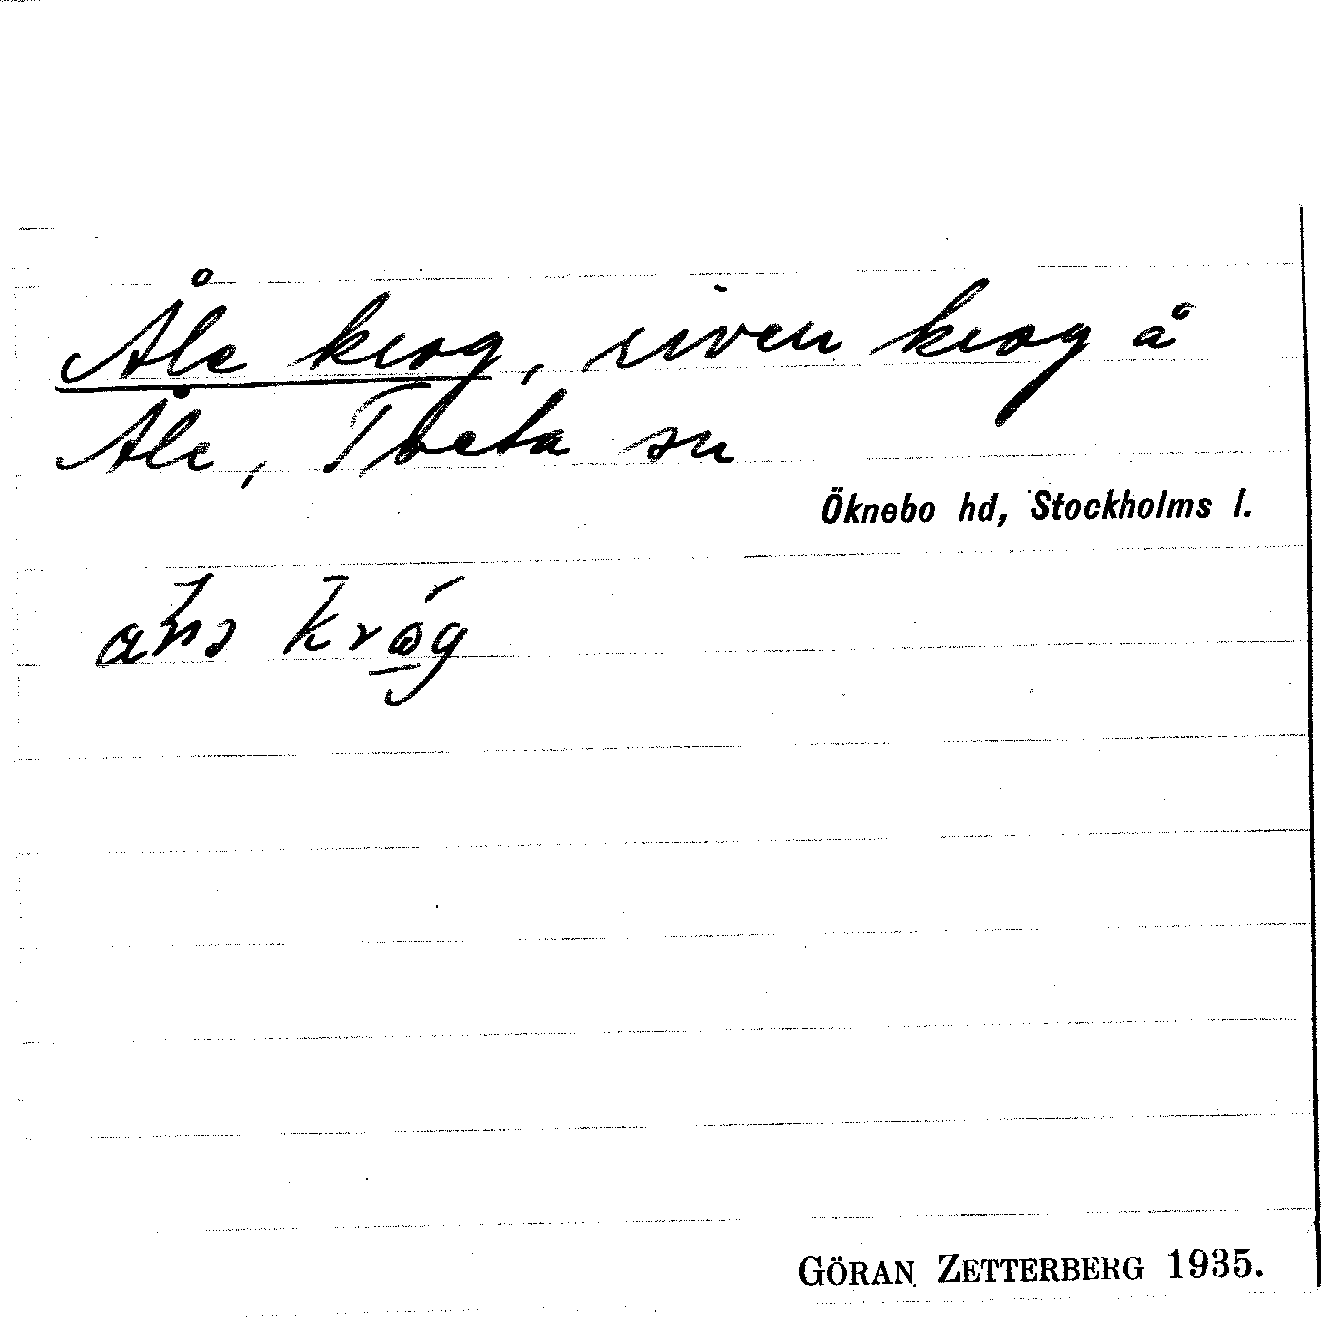 Åle krog, riven krog å
Åle, Tveta sn
Öknebo hd, Stockholms l.
GÖRAN ZETTERBERG 1935.